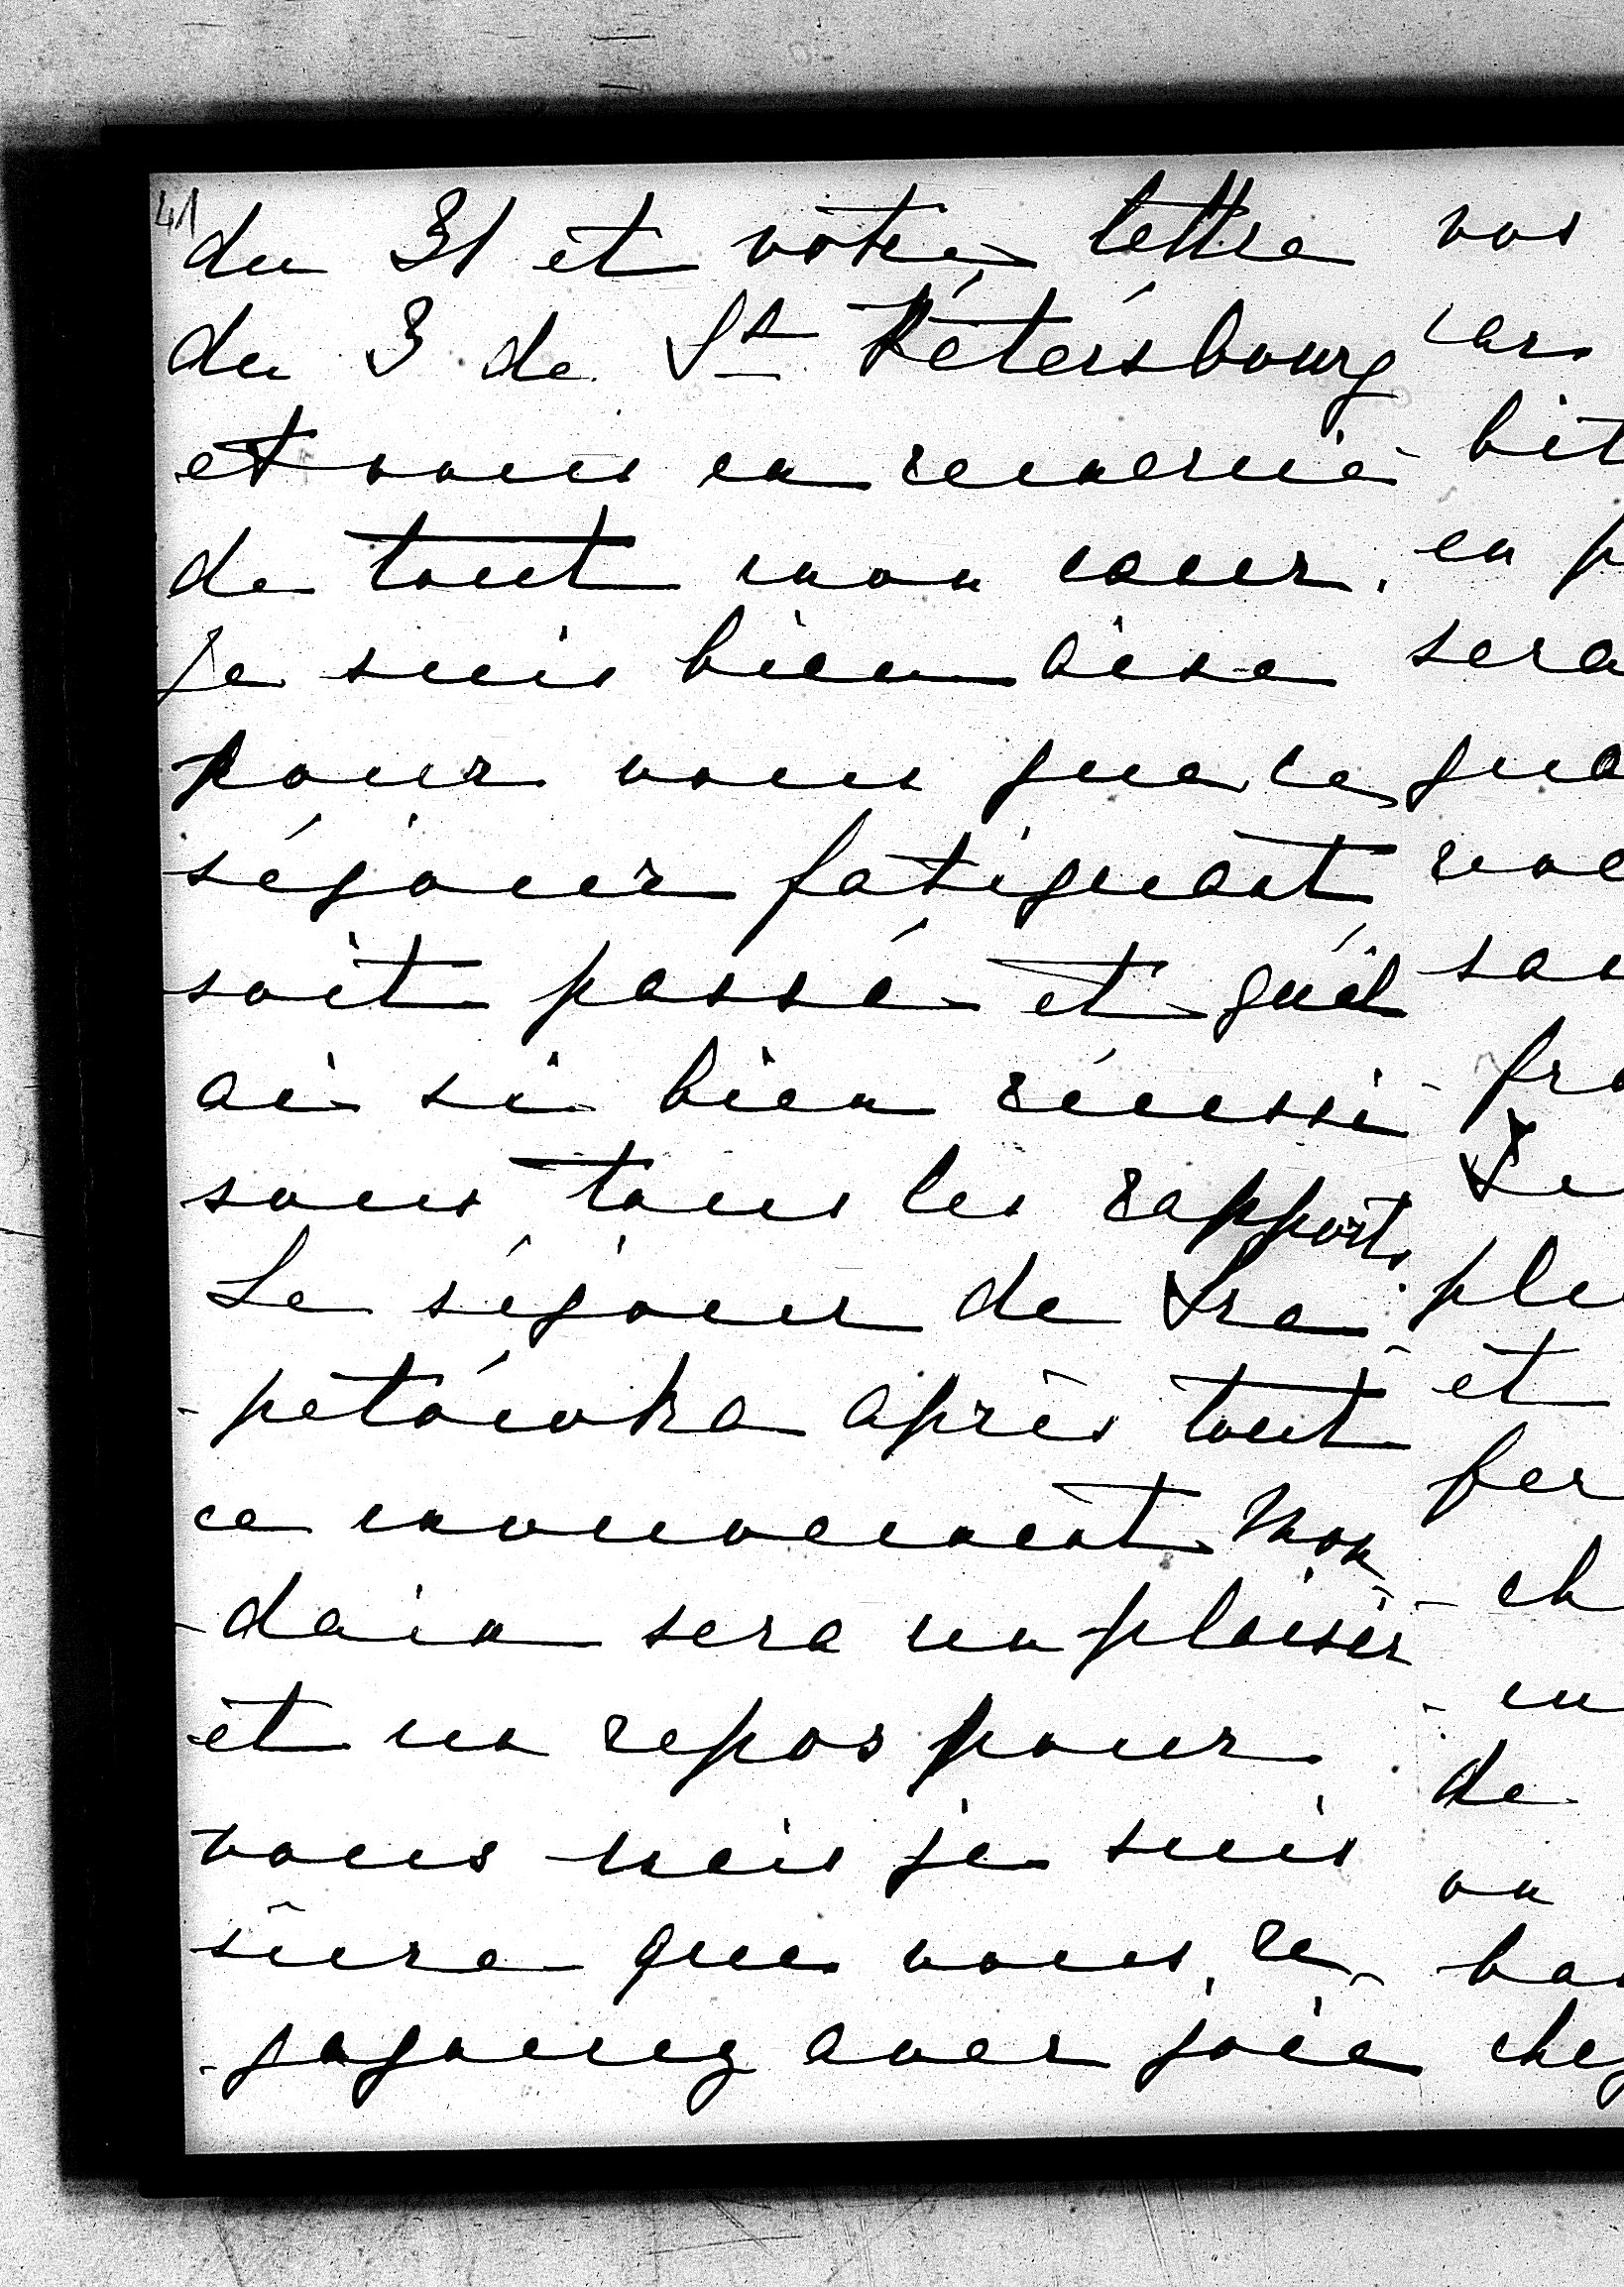 41
du 31 et votre lettre
du 3 de St Pétersbourg
et vous en remercie
de tout mon coeur.
Je suis bien aise
pour vous que ce
séjour fatiguant
soit passé et qu'il
ai si bien réussi
sous tous les rapports.
Le séjour de Sra-
-petówka après tout
ce mouvement mon-
-dain sera un plaisir
et un repos pour
vous mais je suis
sûre que vous re-
-gagnez avec joie
vos
car
bit
en p
sera
que
vou
sou
fra

plu
et
fer
ch
- en
de
on
bas
chez